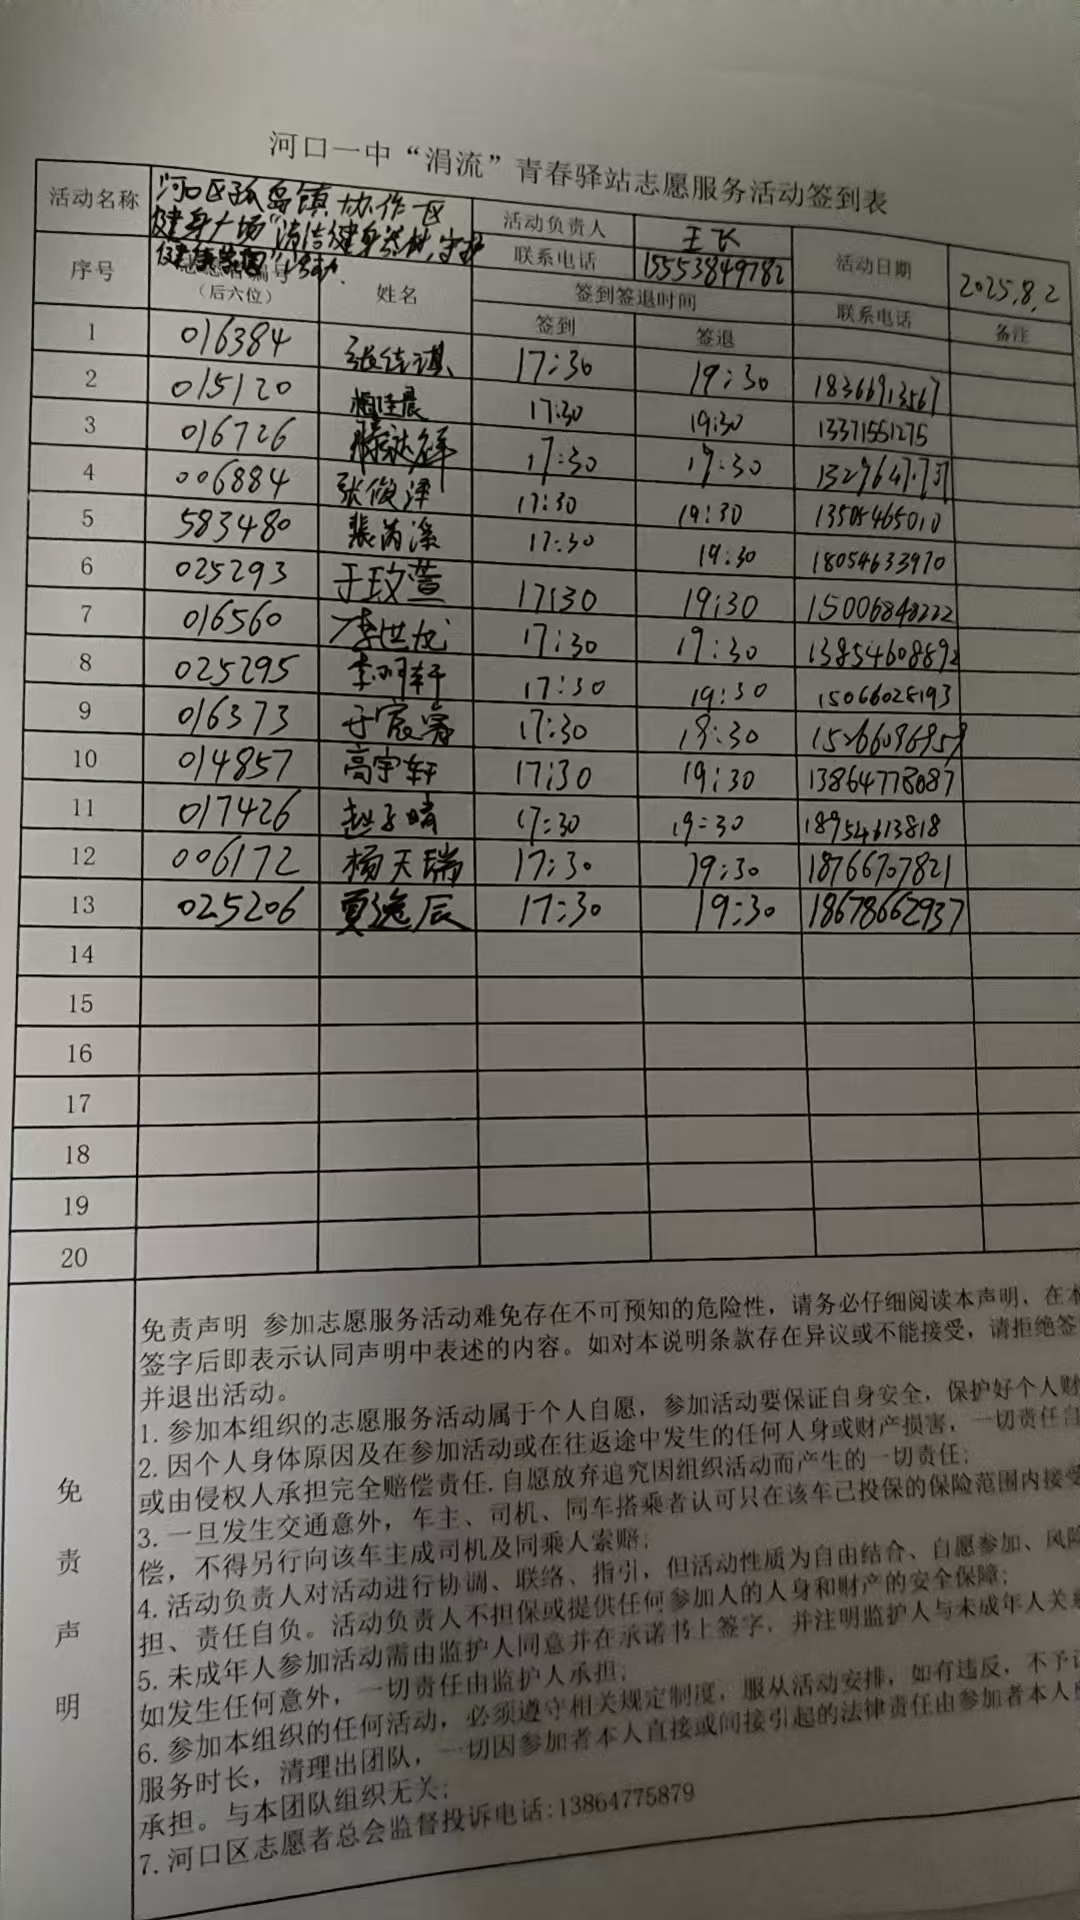 河口一中“涓流”青春驿站志愿服务活动签到表
活动名称 河口区孤岛镇协作区 活动负责人 王飞 活动日期 2025.8.2
健身广场“清洁健身器材,守护 联系电话 15553849782
健康家园”活动.
序号 志愿者编号 姓名 签到签退时间 联系电话 备注
(后六位) 签到 签退
1 016384 张佳琪 17:30 19:30 18366913567
2 015120 佳晨 17:30 19:30 13371551275
3 016726 17:30 19:30
4 006884 张俊泽 17:30 19:30 13505465010
5 583480 裴芮溪 17:30 19:30 18054633970
6 025293 于玟萱 17:30 19:30 15006848222
7 016560 李世龙 17:30 19:30 13854608892
8 025295 李明轩 17:30 19:30 15066028193
9 016373 于宸睿 17:30 19:30 15266096959
10 014857 高宇轩 17:30 19:30 13864778087
11 017426 赵子晴 17:30 19:30 18954613818
12 006172 杨天瑞 17:30 19:30 18766707821
13 025206 夏逸辰 17:30 19:30 18678662937
14
15
16
17
18
19
20
免责声明
免责声明 参加志愿服务活动难免存在不可预知的危险性，请务必仔细阅读本声明，在本
签字后即表示认同声明中表述的内容。如对本说明条款存在异议或不能接受，请拒绝签
并退出活动。
1. 参加本组织的志愿服务活动属于个人自愿，参加活动要保证自身安全，保护好个人财
2. 因个人身体原因及在参加活动或在往返途中发生的任何人身或财产损害，一切责任自
或由侵权人承担完全赔偿责任.自愿放弃追究因组织活动而产生的一切责任；
3. 一旦发生交通意外，车主、司机、同车搭乘者认可只在该车已投保的保险范围内接受
偿，不得另行向该车主成司机及同乘人索赔；
4. 活动负责人对活动进行协调、联络、指引，但活动性质为自由结合、自愿参加、风险
担、责任自负。活动负责人不担保或提供任何参加人的人身和财产的安全保障；
5. 未成年人参加活动需由监护人同意并在承诺书上签字，并注明监护人与未成年人关系
如发生任何意外，一切责任由监护人承担；
6. 参加本组织的任何活动，必须遵守相关规定制度，服从活动安排，如有违反，不予
服务时长，清理出团队，一切因参加者本人直接或间接引起的法律责任由参加者本人
承担。与本团队组织无关；
7. 河口区志愿者总会监督投诉电话:13864775879